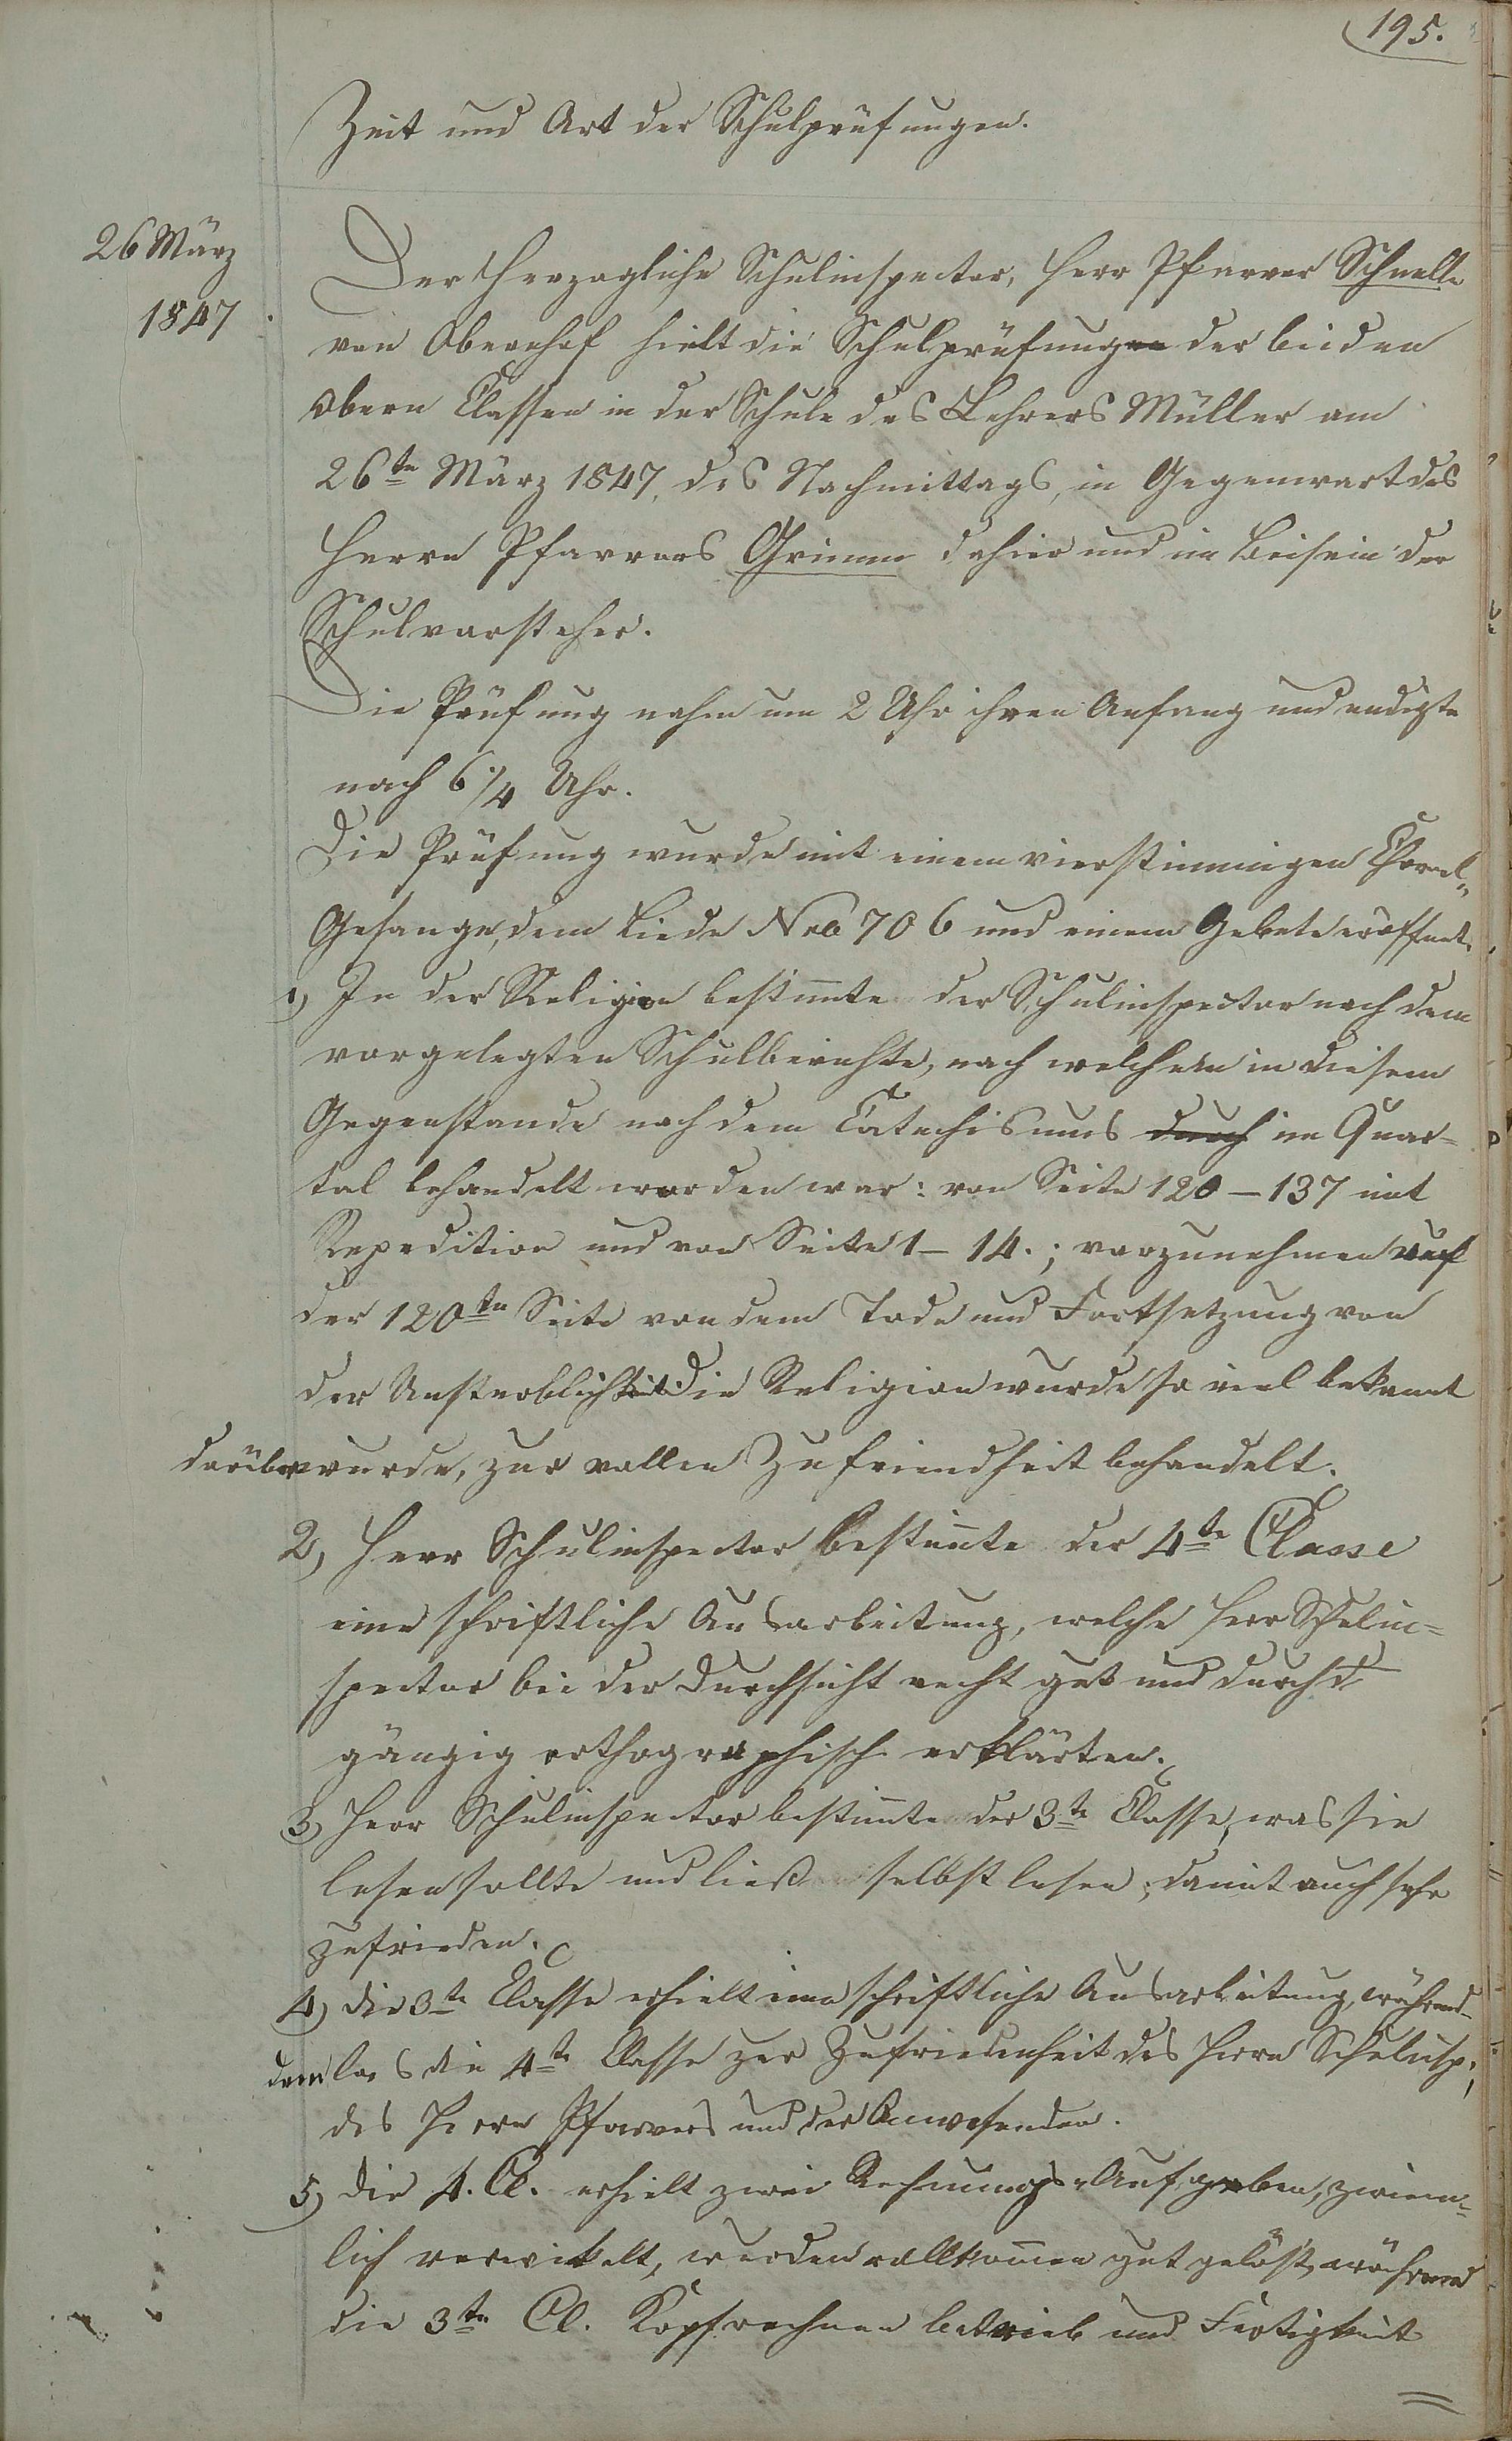 195.
Zeit und Art der Schulprüfungen.
26 März
1847
Der Herzogliche Schulinspector, Herr Pfarrer Schnelle
von Obernhof hielt die Schulprüfungen der beiden
obern Classen in der Schule des Lehrers Müller am
26ten März 1847, des Nachmittags, in Gegenwart des
Herrn Pfarrers Grimm dahier und im Beisein der
Schulvorsteher.
Die Prüfung nahm um 2 Uhr ihren Anfang und endigte
nach 6 1/4 Uhr.
Die Prüfung wurde mit einem vierstimmigen Choral-
Gesange, dem Liede Nro 706 und einem Gebete eröffnet.
1) In der Religion bestimmte der Schulinspector nach dem
vorgelegten Schulberichte, nach welchem in diesem
Gegenstande nach dem Catechismus durch im Quar=
tal behandelt worden war: von Seite 120 – 137 mit
Repedition und von Seite 1 – 14.; vorzunehmen auf
der 120ten Seite von dem Tode und Fortsetzung von
der Unsterblichkeit. Die Religion wurde so viel bekannt
darüber wurde, zur vollen Zufriendheit behandelt.
2) Herr Schulinspector bestimmte der 4te Classe
eine schriftliche Ausarbeitung, welche Herr Schulin=
spector bei der Durchsicht recht gut und durch
gängig orthographisch erklärten.
3) Herr Schulinspector bestimmte der 3te Classe, was sie
lesen sollte und ließ selbst lesen, damit auch sehr
zufrieden.
4) die 3te Classe erhielt eine schriftliche Ausarbeitung, während=
dem las die 4te Classe zur Zufriedenheit des Herrn Schulinsp.,
des Herrn Pfarrers und der Anwesenden.
5) die 4. Cl. erhielt zwei Rechnungs-Aufgaben, ziem=
lich verwickelt, wurden vollkommen gut gelöst, während
die 3te Cl. Kopfrechnen betrieb und Fertigkeit